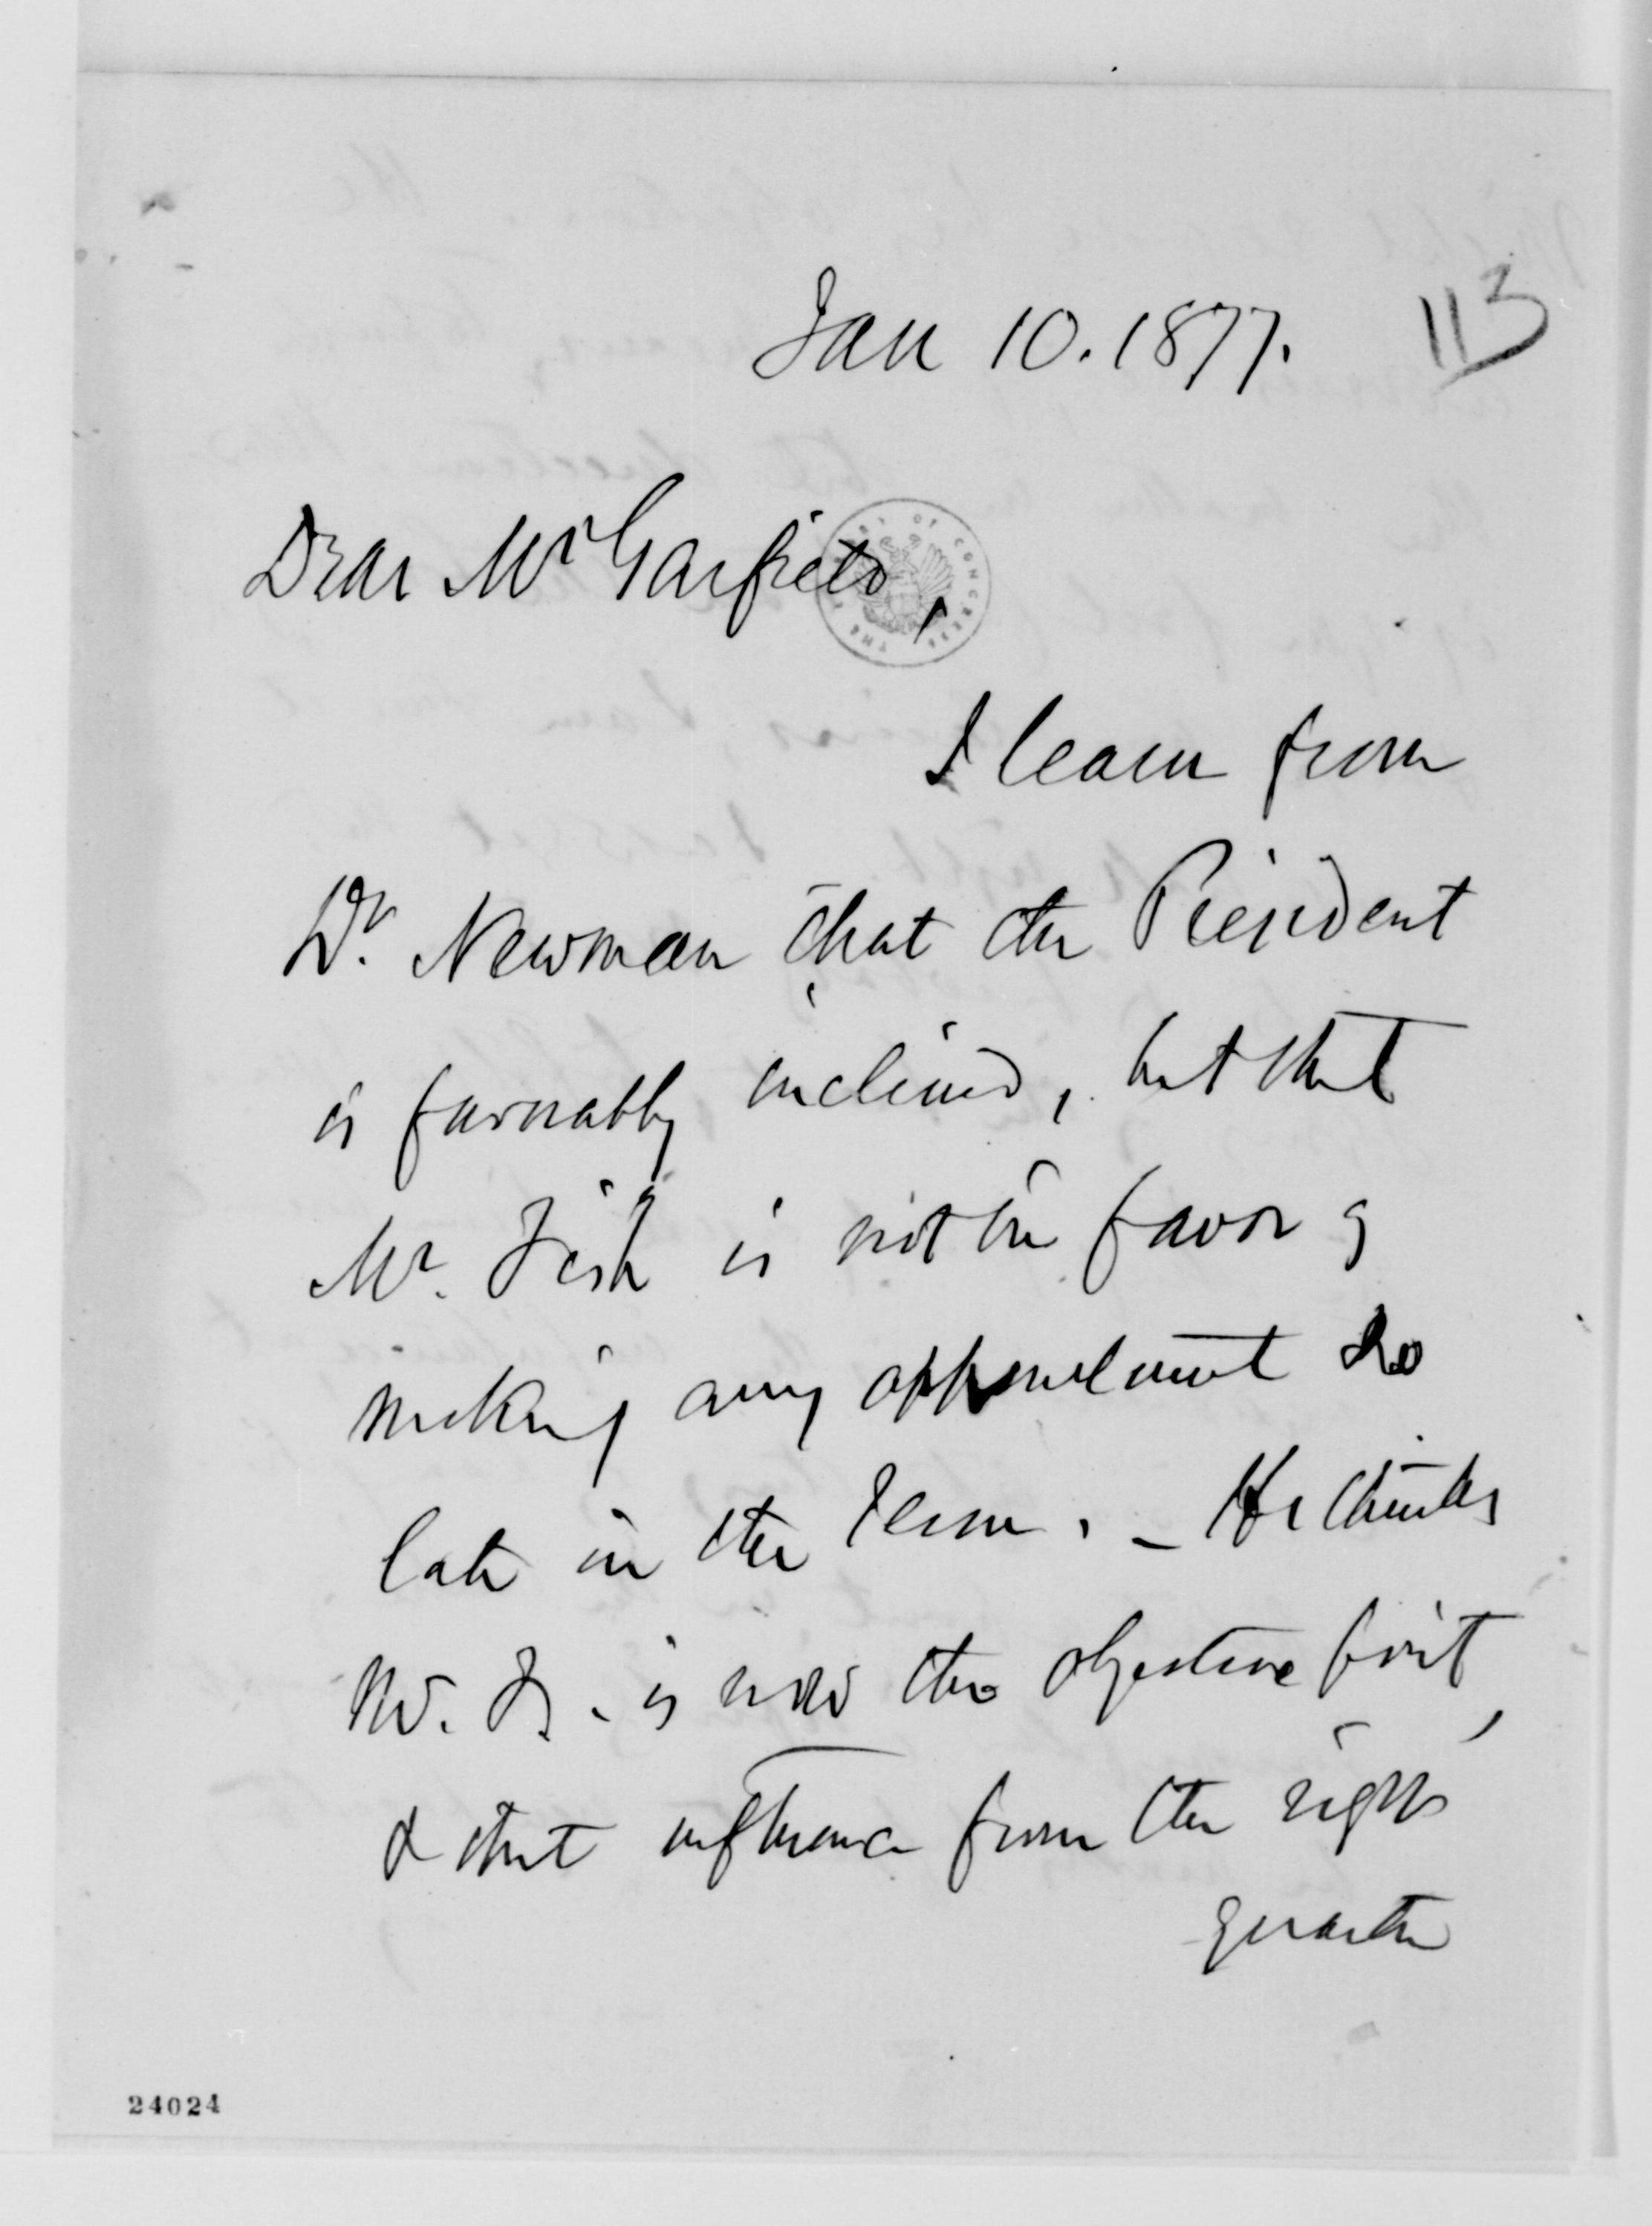 113
Jan 10. 1877.
Dear Mr Garfield,
I learn from
Dr. Newman that the President
is favorably inclined, but that
Mr. Fish is not in favor of
making any appointment so
late in the term. _ He thinks
Mr. F. is now the objective point,
& that influence from the right
quarter
THE LIBRARY OF CONGRESS
24024